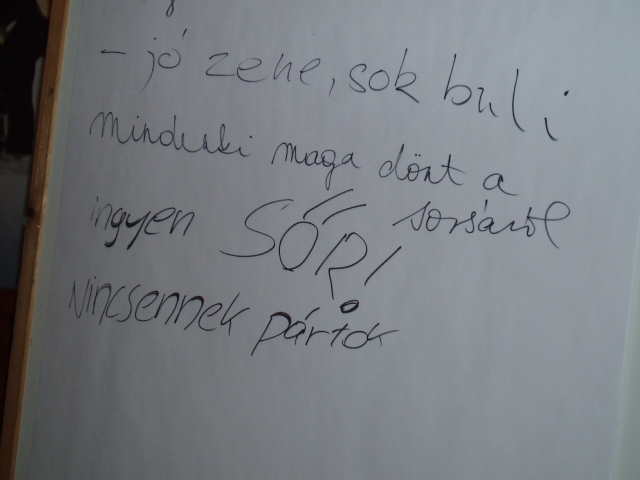 - jó zene, sok buli
mindenki maga dönt a
sorsáról
ingyen SŐR!
Nincsennek pártok